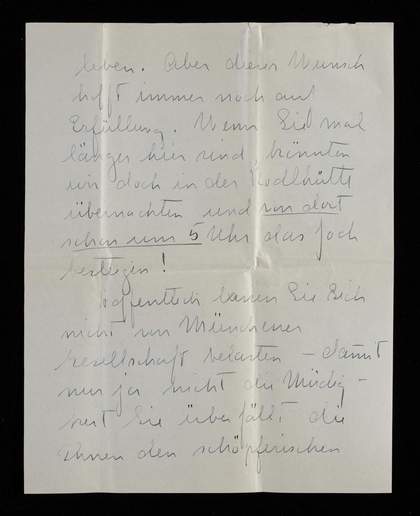 leben. Aber dieser Wunsch
hofft immer noch auf
Erfüllung. Wenn Sie mal
länger hier sind, könnten
wir doch in der Rodlhütte
übernachten und von dort
schon um 5 Uhr das Joch
besteigen!
Hoffentlich lassen Sie Sich
nicht von Münchener
Gesellschaft belasten – damit
nur ja nicht die Müdig-
keit Sie überfällt die
Ihnen den schöpferischen